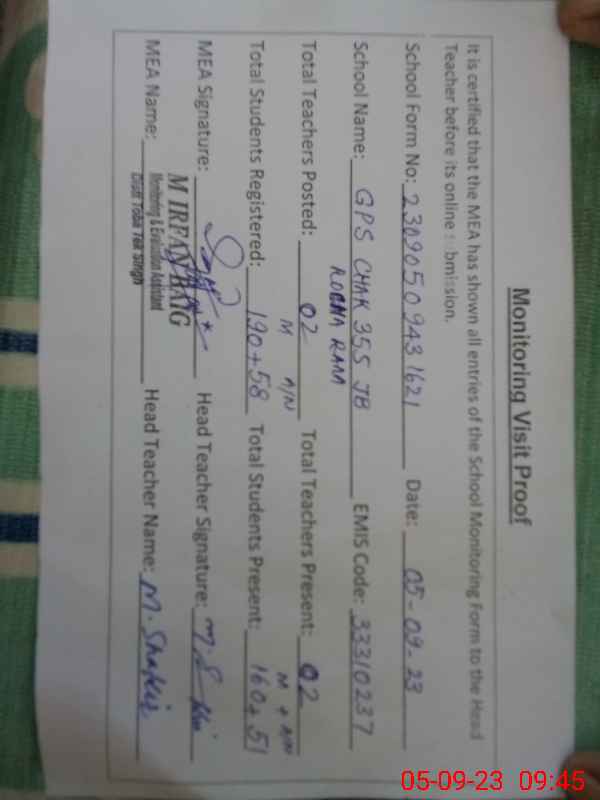 Monitoring Visit Proof
It is certified that the MEA has shown all entries of the School Monitoring Form to the Head
Teacher before its online submission.
School Form No: 2309050943 1621 Date: 05-09-23
School Name: GPS CHAK 355 JB EMIS Code: 33310237
RODHA RAM
Total Teachers Posted: 02 Total Teachers Present: 02
M A/N M + A/N
Total Students Registered: 190+58 Total Students Present: 160+51
MEA Signature: Head Teacher Signature:
M IRFAN BAIG
Monitoring & Evaluation Assistant
Distt Toba Tek Singh
MEA Name: Head Teacher Name: M. Shakir
05-09-23 09:45